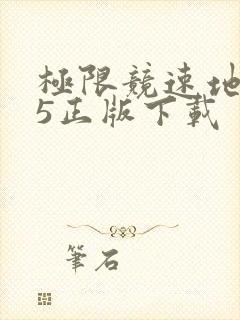 極限競速地
5正版下載
筆石